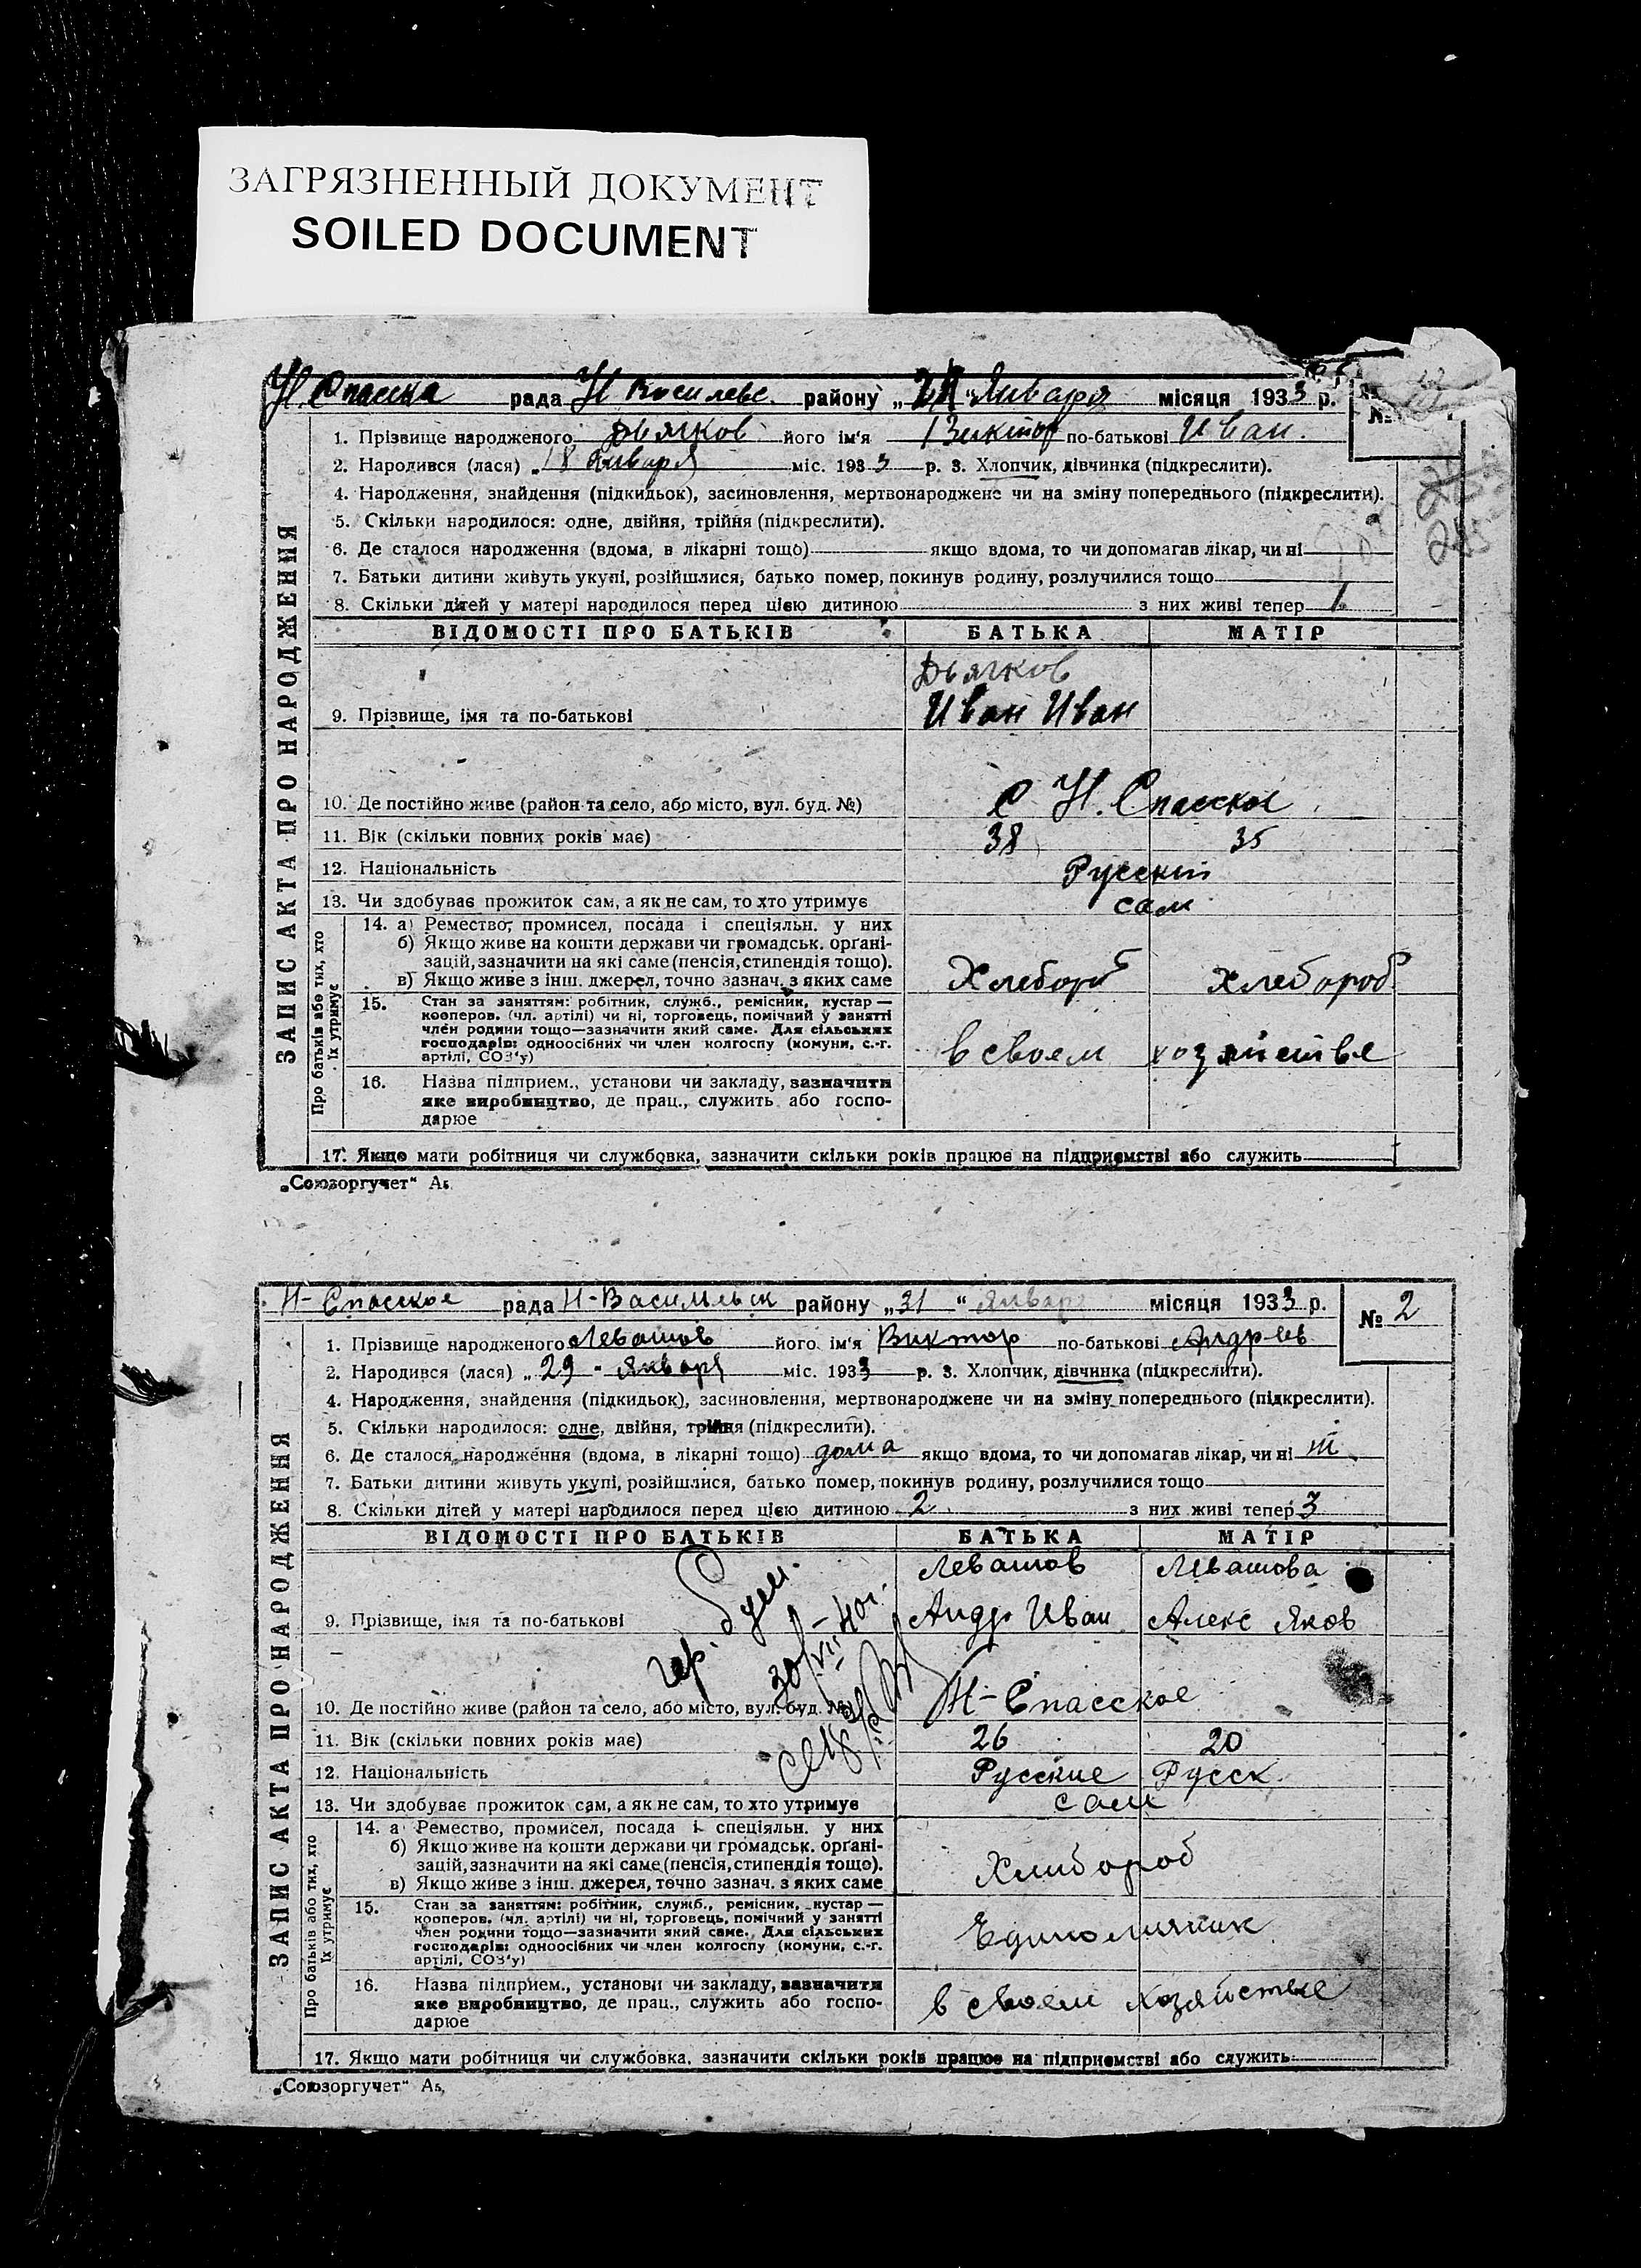 ЗАГРЯЗНЕННЫЙ ДОКУМЕНТ
SOILED DOCUMENT
Н. Спасска рада Н Василевс. району „ “ Января місяця 1933 р. №
1. Прізвище народженого Дьячков його ім'я Виктор по-батькові Иван.
2. Народився (лася) „18 Января міс. 1933 р. 3. Хлопчик, дівчинка (підкреслити).
4. Народження, знайдення (підкидьок), засиновлення, мертвонароджене чи на зміну попереднього (підкреслити).
5. Скільки народилося: одне, двійня, трійня (підкреслити).
6. Де сталося народження (вдома, в лікарні тощо) якщо вдома, то чи допомагав лікар, чи ні
7. Батьки дитини живуть укупі, розійшлися, батько помер, покинув родину, розлучилися тощо
8. Скільки дітей у матері народилося перед цією дитиною з них живі тепер 1
ЗАПИС АКТА ПРО НАРОДЖЕННЯ
ВІДОМОСТІ ПРО БАТЬКІВ БАТЬКА МАТІР
Дьячков
9. Прізвище, імя та по-батькові Иван Иван
10. Де постійно живе (район та село, або місто, вул. буд. №) С Н. Спасское
11. Вік (скільки повних років має) 38 35
12. Національність Русский
13. Чи здобуває прожиток сам, а як не сам, то хто утримує сам
Про батьків або тих, хто їх утримує
14. а) Ремество, промисел, посада і спеціяльн. у них
б) Якщо живе на кошти держави чи громадськ. орґані-
зацій, зазначити на які саме (пенсія, стипендія тощо).
в) Якщо живе з інш. джерел, точно зазнач. з яких саме Хлебороб Хлебороб
15. Стан за заняттям: робітник, служб., ремісник, кустар —
кооперов. (чл. артілі) чи ні, торговець, помічний у занятті
член родини тощо—зазначити який саме. Для сільських
господарів: одноосібних чи член колгоспу (комуни, с.-г.
артілі, СОЗ'у) в своем хозяйстве
16. Назва підприєм., установи чи закладу, зазначити
яке виробництво, де прац., служить або госпо-
дарює
17. Якщо мати робітниця чи службовка, зазначити скільки років працює на підприємстві або служить
„Союзоргучет“ А₅
Н-Спасское рада Н-Васильевск району „31“ Января місяця 1933 р. № 2
1. Прізвище народженого Левашов його ім'я Виктор по-батькові Андреев
2. Народився (лася) „29 " Января міс. 1933 р. 3. Хлопчик, дівчинка (підкреслити).
4. Народження, знайдення (підкидьок), засиновлення, мертвонароджене чи на зміну попереднього (підкреслити).
5. Скільки народилося: одне, двійня, трійня (підкреслити).
6. Де сталося народження (вдома, в лікарні тощо) дома якщо вдома, то чи допомагав лікар, чи ні
7. Батьки дитини живуть укупі, розійшлися, батько помер, покинув родину, розлучилися тощо
8. Скільки дітей у матері народилося перед цією дитиною 2 з них живі тепер 3
ЗАПИС АКТА ПРО НАРОДЖЕННЯ
ВІДОМОСТІ ПРО БАТЬКІВ БАТЬКА МАТІР
Левашов Левашова
9. Прізвище, імя та по-батькові Андр Иван Алекс Яков
10. Де постійно живе (район та село, або місто, вул. буд. №) Н-Спасское
11. Вік (скільки повних років має) 26 20
12. Національність Русские Русск.
13. Чи здобуває прожиток сам, а як не сам, то хто утримує сам
Про батьків або тих, хто їх утримує
14. а Ремество, промисел, посада і спеціяльн. у них
б) Якщо живе на кошти держави чи громадськ. орґані-
зацій, зазначити на які саме (пенсія, стипендія тощо).
в) Якщо живе з інш. джерел, точно зазнач. з яких саме Хлибороб
15. Стан за заняттям: робітник, служб., ремісник, кустар —
кооперов. (чл. артілі) чи ні, торговець, помічний у занятті
член родини тощо—зазначити який саме. Для сільських
господарів: одноосібних чи член колгоспу (комуни, с.-г.
артілі, СОЗ'у) Единоличник
16. Назва підприєм., установи чи закладу, зазначити
яке виробництво, де прац., служить або госпо- в своем хозяйстве
дарює
17. Якщо мати робітниця чи службовка, зазначити скільки років працює на підприємстві або служить
„Союзоргучет“ А₅